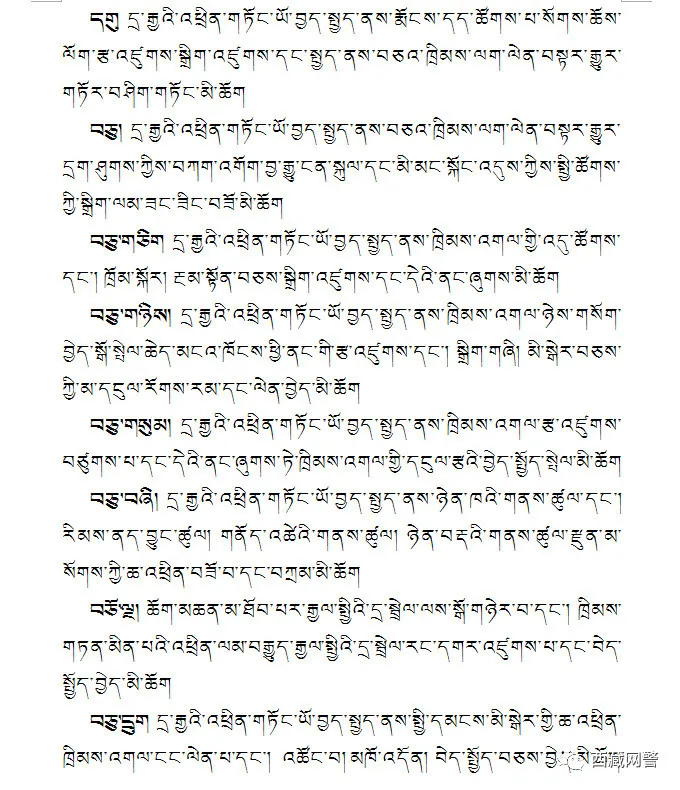 དགུ དྲ་རྒྱའི་འཕྲིན་གཏོང་ཡོ་བྱད་སྤྱད་ནས་རྨོངས་དད་ཚོགས་པ་སོགས་ཆོས་
ལོག་རྩ་འཛུགས་སྒྲིག་འཛུགས་དང་སྤྱད་ནས་བཅའ་ཁྲིམས་ལག་ལེན་བསྟར་རྒྱུར་
གཏོར་བཤིག་གཏོང་མི་ཆོག
བཅུ། དྲ་རྒྱའི་འཕྲིན་གཏོང་ཡོ་བྱད་སྤྱད་ནས་བཅའ་ཁྲིམས་ལག་ལེན་བསྟར་རྒྱུར་
དྲག་ཤུགས་ཀྱིས་བཀག་འགོག་བྱ་རྒྱུ་ངན་སྐུལ་དང་མི་མང་སྐོང་འདུས་ཀྱིས་སྤྱི་ཚོགས་
ཀྱི་སྒྲིག་ལམ་ཟང་ཟིང་བཟོ་མི་ཆོག
བཅུ་གཅིག དྲ་རྒྱའི་འཕྲིན་གཏོང་ཡོ་བྱད་སྤྱད་ནས་ཁྲིམས་འགལ་གྱི་འདུ་ཚོགས་
དང་། ཁྲོམ་སྐོར། རྔམ་སྟོན་བཅས་སྒྲིག་འཛུགས་དང་དེའི་ནང་ཞུགས་མི་ཆོག
བཅུ་གཉིས། དྲ་རྒྱའི་འཕྲིན་གཏོང་ཡོ་བྱད་སྤྱད་ནས་ཁྲིམས་འགལ་ཉེས་གསོག་
བྱེད་སྒོ་སྤེལ་ཆེད་མངའ་ཁོངས་ཕྱི་ནང་གི་རྩ་འཛུགས་དང་། སྒྲིག་གཞི། མི་སྒེར་བཅས་
ཀྱི་མ་དངུལ་རོགས་རམ་དང་ལེན་བྱེད་མི་ཆོག
བཅུ་གསུམ། དྲ་རྒྱའི་འཕྲིན་གཏོང་ཡོ་བྱད་སྤྱད་ནས་ཁྲིམས་འགལ་རྩ་འཛུགས་
བཙུགས་པ་དང་དེའི་ནང་ཞུགས་ཏེ་ཁྲིམས་འགལ་གྱི་དངུལ་རྩའི་བྱེད་སྤྱོད་སྤེལ་མི་ཆོག
བཅུ་བཞི། དྲ་རྒྱའི་འཕྲིན་གཏོང་ཡོ་བྱད་སྤྱད་ནས་ཉེན་ཁའི་གནས་ཚུལ་དང་།
རིམས་ནད་བྱུང་ཚུལ། གནོད་འཚེའི་གནས་ཚུལ། ཉེན་བརྡའི་གནས་ཚུལ་རྫུན་མ་
སོགས་ཀྱི་ཆ་འཕྲིན་བཟོ་བ་དང་བཀྲམ་མི་ཆོག
བཅོ་ལྔ། ཆོག་མཆན་མ་ཐོབ་པར་རྒྱལ་སྤྱིའི་དྲ་སྦྲེལ་ལས་སྒོ་གཉེར་བ་དང་། ཁྲིམས་
གཏན་མིན་པའི་འཕྲིན་ལམ་བརྒྱུད་རྒྱལ་སྤྱིའི་དྲ་སྦྲེལ་རང་དགར་འཛུགས་པ་དང་བེད་
སྤྱོད་བྱེད་མི་ཆོག
བཅུ་དྲུག དྲ་རྒྱའི་འཕྲིན་གཏོང་ཡོ་བྱད་སྤྱད་ནས་སྤྱི་དམངས་མི་སྒེར་གྱི་ཆ་འཕྲིན་
ཁྲིམས་འགལ་ངང་ལེན་པ་དང་། འཚོང་བ། མཁོ་འདོན། བེད་སྤྱོད་བཅས་
西藏网警